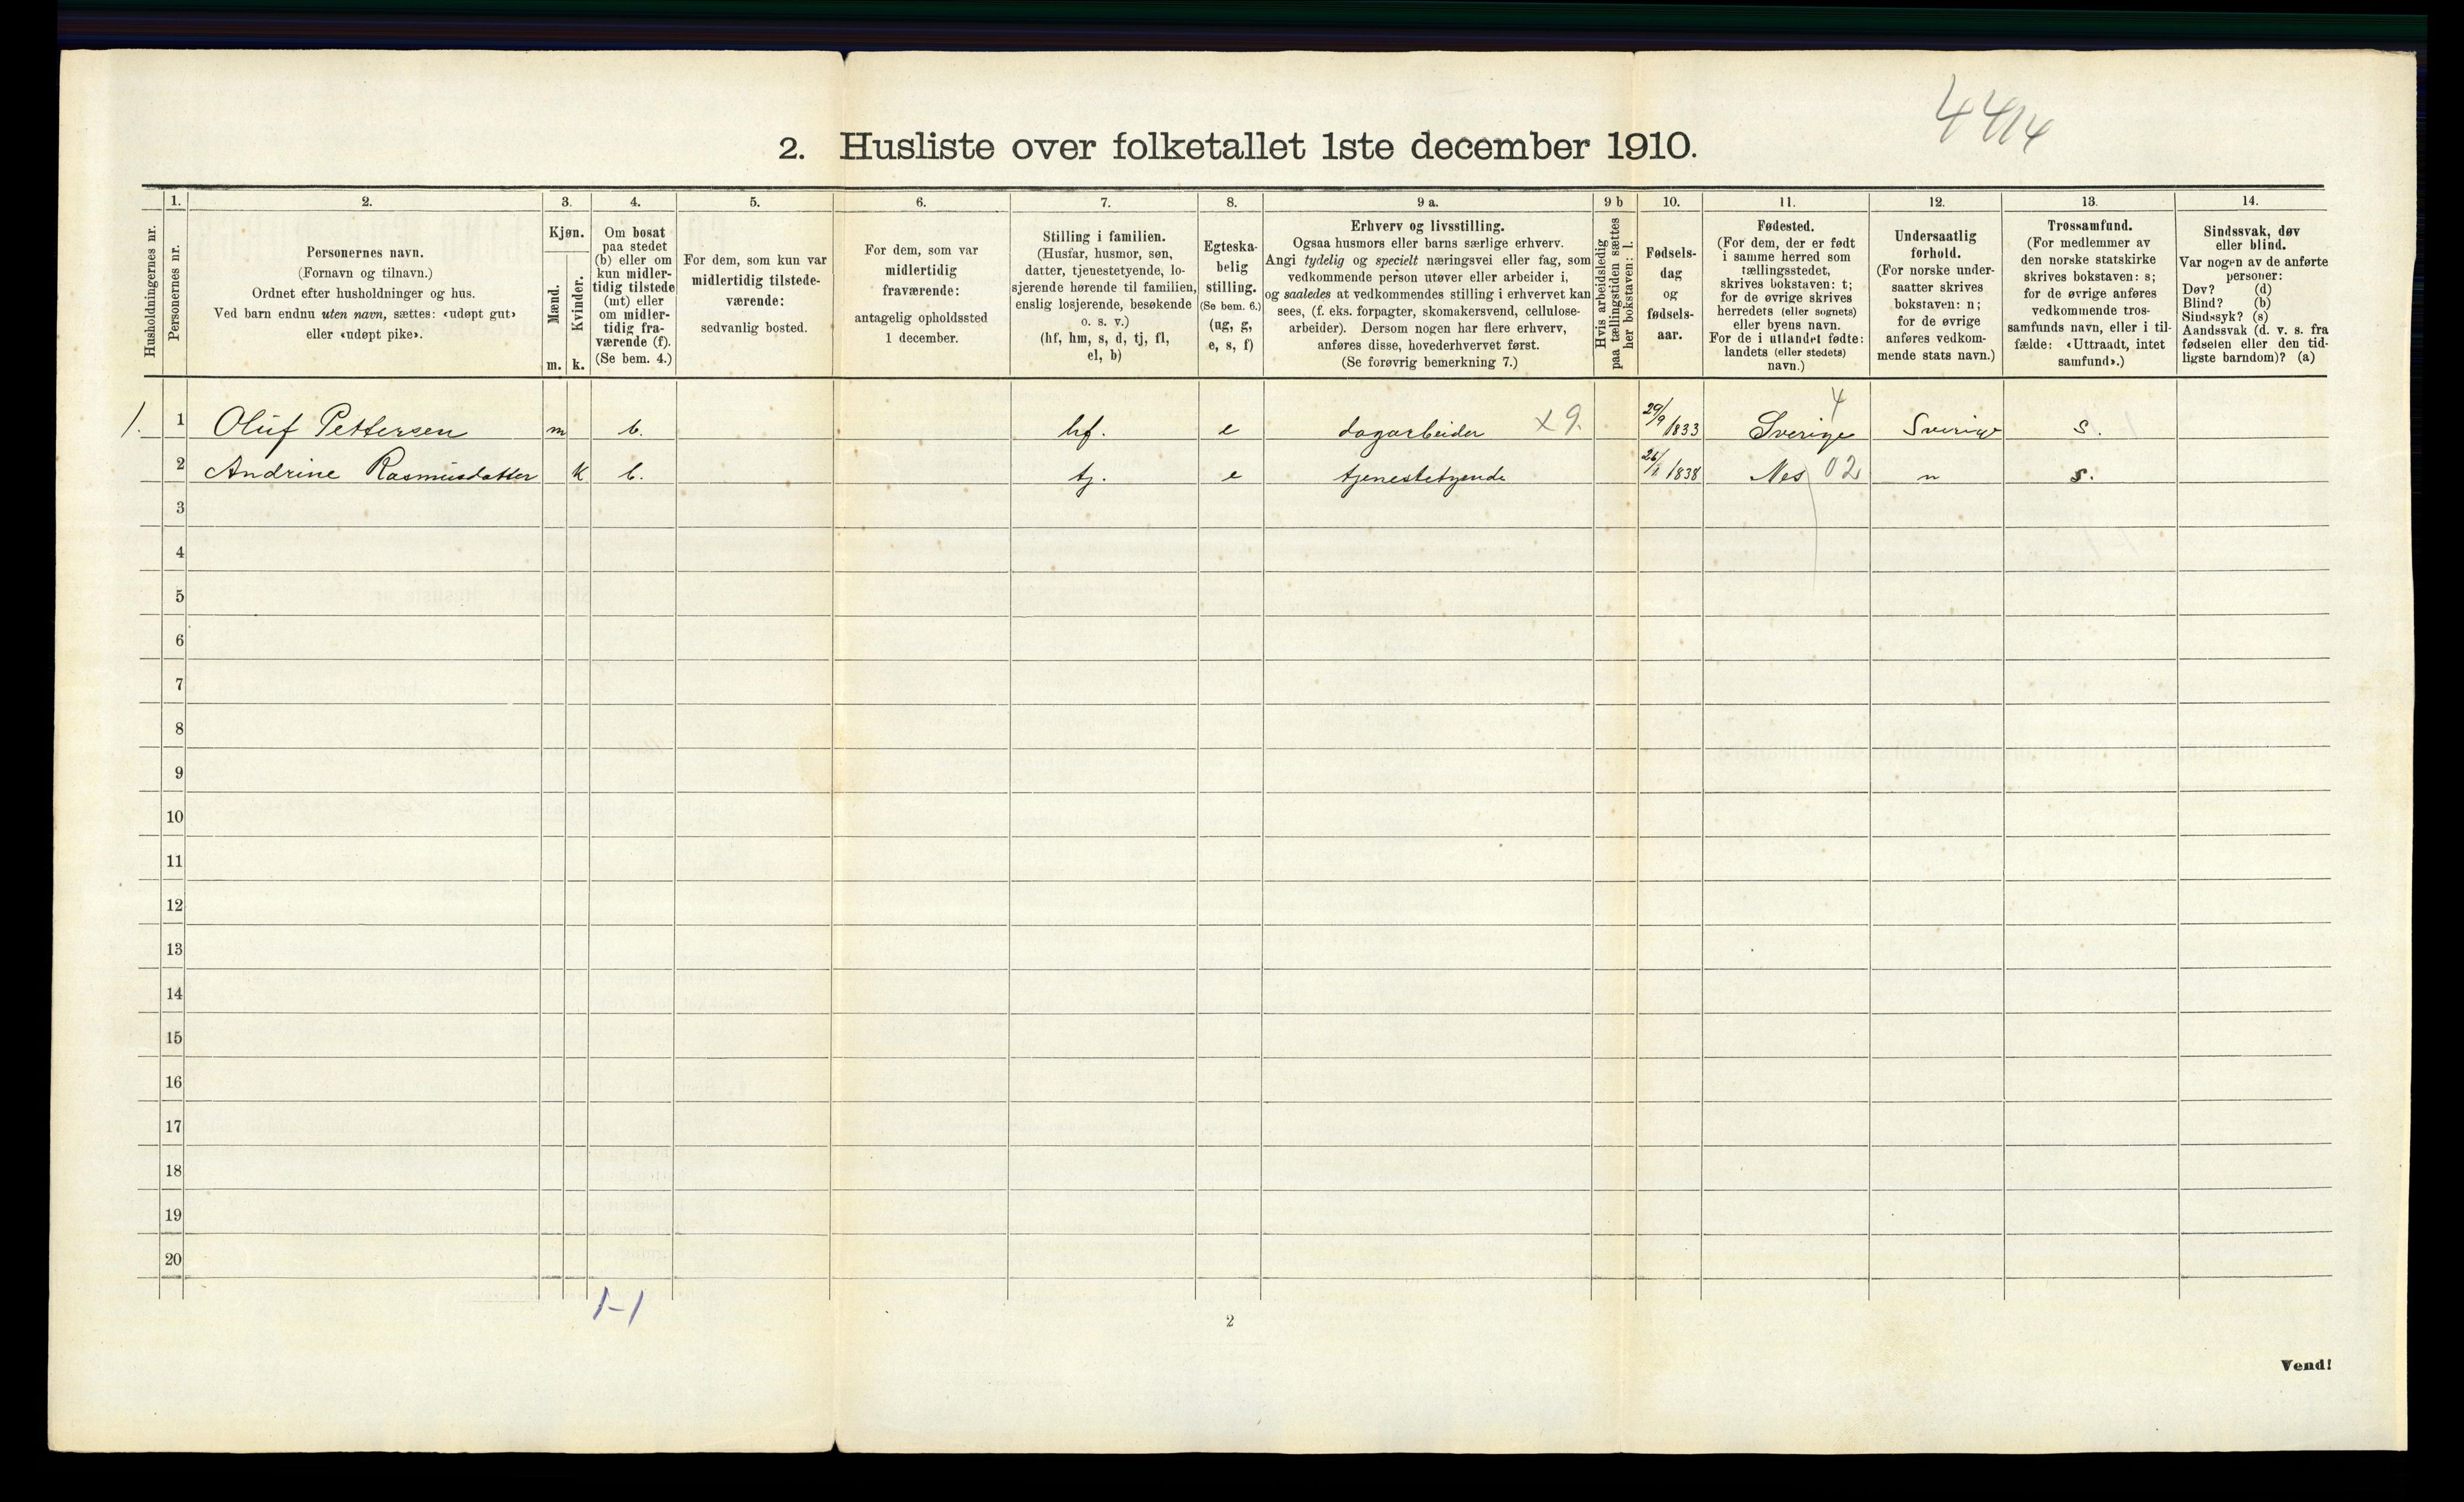 4414
2. Husliste over folketallet 1ste december 1910.
1. 2. 3. 4. 5. 6. 7. 8. 9 a. 9 b 10. 11. 12. 13. 14.
Husholdningernes nr.
Personernes nr.
Personernes navn.
(Fornavn og tilnavn.)
Ordnet efter husholdninger og hus.
Ved barn endnu uten navn, sættes: «udøpt gut»
eller «udøpt pike».
Kjøn.
Mænd.
Kvinder.
m. k.
Om bosat
paa stedet
(b) eller om
kun midler-
tidig tilstede
(mt) eller
om midler-
tidig fra-
værende (f).
(Se bem. 4.)
For dem, som kun var
midlertidig tilstede-
værende:
sedvanlig bosted.
For dem, som var
midlertidig
fraværende:
antagelig opholdssted
1 december.
Stilling i familien.
(Husfar, husmor, søn,
datter, tjenestetyende, lo-
sjerende hørende til familien,
enslig losjerende, besøkende
o. s. v.)
(hf, hm, s, d, tj, fl,
el, b)
Egteska-
belig
stilling.
(Se bem. 6.)
(ug, g,
e, s, f)
Erhverv og livsstilling.
Ogsaa husmors eller barns særlige erhverv.
Angi tydelig og specielt næringsvei eller fag, som
vedkommende person utøver eller arbeider i,
og saaledes at vedkommendes stilling i erhvervet kan
sees, (f. eks. forpagter, skomakersvend, cellulose-
arbeider). Dersom nogen har flere erhverv,
anføres disse, hovederhvervet først.
(Se forøvrig bemerkning 7.)
Hvis arbeidsledig
paa tællingstiden sættes
her bokstaven: l.
Fødsels-
dag
og
fødsels-
aar.
Fødested.
(For dem, der er født
i samme herred som
tællingsstedet,
skrives bokstaven: t;
for de øvrige skrives
herredets (eller sognets)
eller byens navn.
For de i utlandet fødte:
landets (eller stedets)
navn.)
Undersaatlig
forhold.
(For norske under-
saatter skrives
bokstaven: n;
for de øvrige
anføres vedkom-
mende stats navn.)
Trossamfund.
(For medlemmer av
den norske statskirke
skrives bokstaven: s;
for de øvrige anføres
vedkommende tros-
samfunds navn, eller i til-
fælde: «Uttraadt, intet
samfund».)
Sindssvak, døv
eller blind.
Var nogen av de anførte
personer:
Døv? (d)
Blind? (b)
Sindssyk? (s)
Aandssvak (d. v. s. fra
fødselen eller den tid-
ligste barndom)? (a)
1. 1 Oluf Pettersen m b. hf. e dagarbeider x9. 29/9 1833 Sverige 4 Sverige s.
2 Andrine Rasmusdatter k b. tj. e tjenestetyende 1838 Nes 02 n s.
3
4
5
6
7
8
9
10
11
12
13
14
15
16
17
18
19
20
1-1
2
Vend!